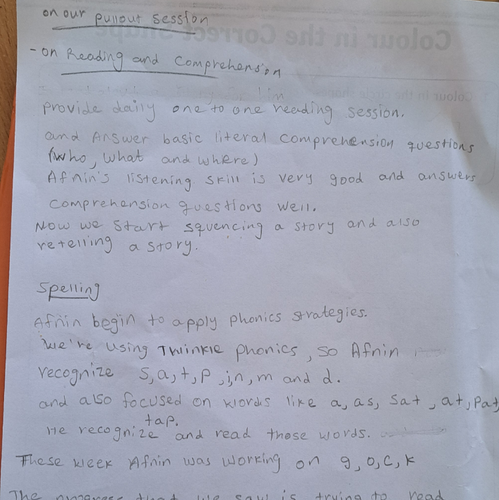 on our pullout session
- on Reading and Comprehension
provide daily one to one reading session.
and Answer basic literal comprehension questions
(who, what and where)
Afnin's listening skill is very good and answers
comprehension questions well.
Now we start squencing a story and also
retelling a story.
Spelling
Afnin begin to apply phonics strategies.
We're using Twinkle phonics, so Afnin
recognize s, a, t, p, i, n, m and d.
and also focused on words like a, as, sat, at, pat,
tap.
He recognize and read those words.
These week Afnin was working on g, o, c, k
The that we saw is trying to read
Colour in the Correct Shape